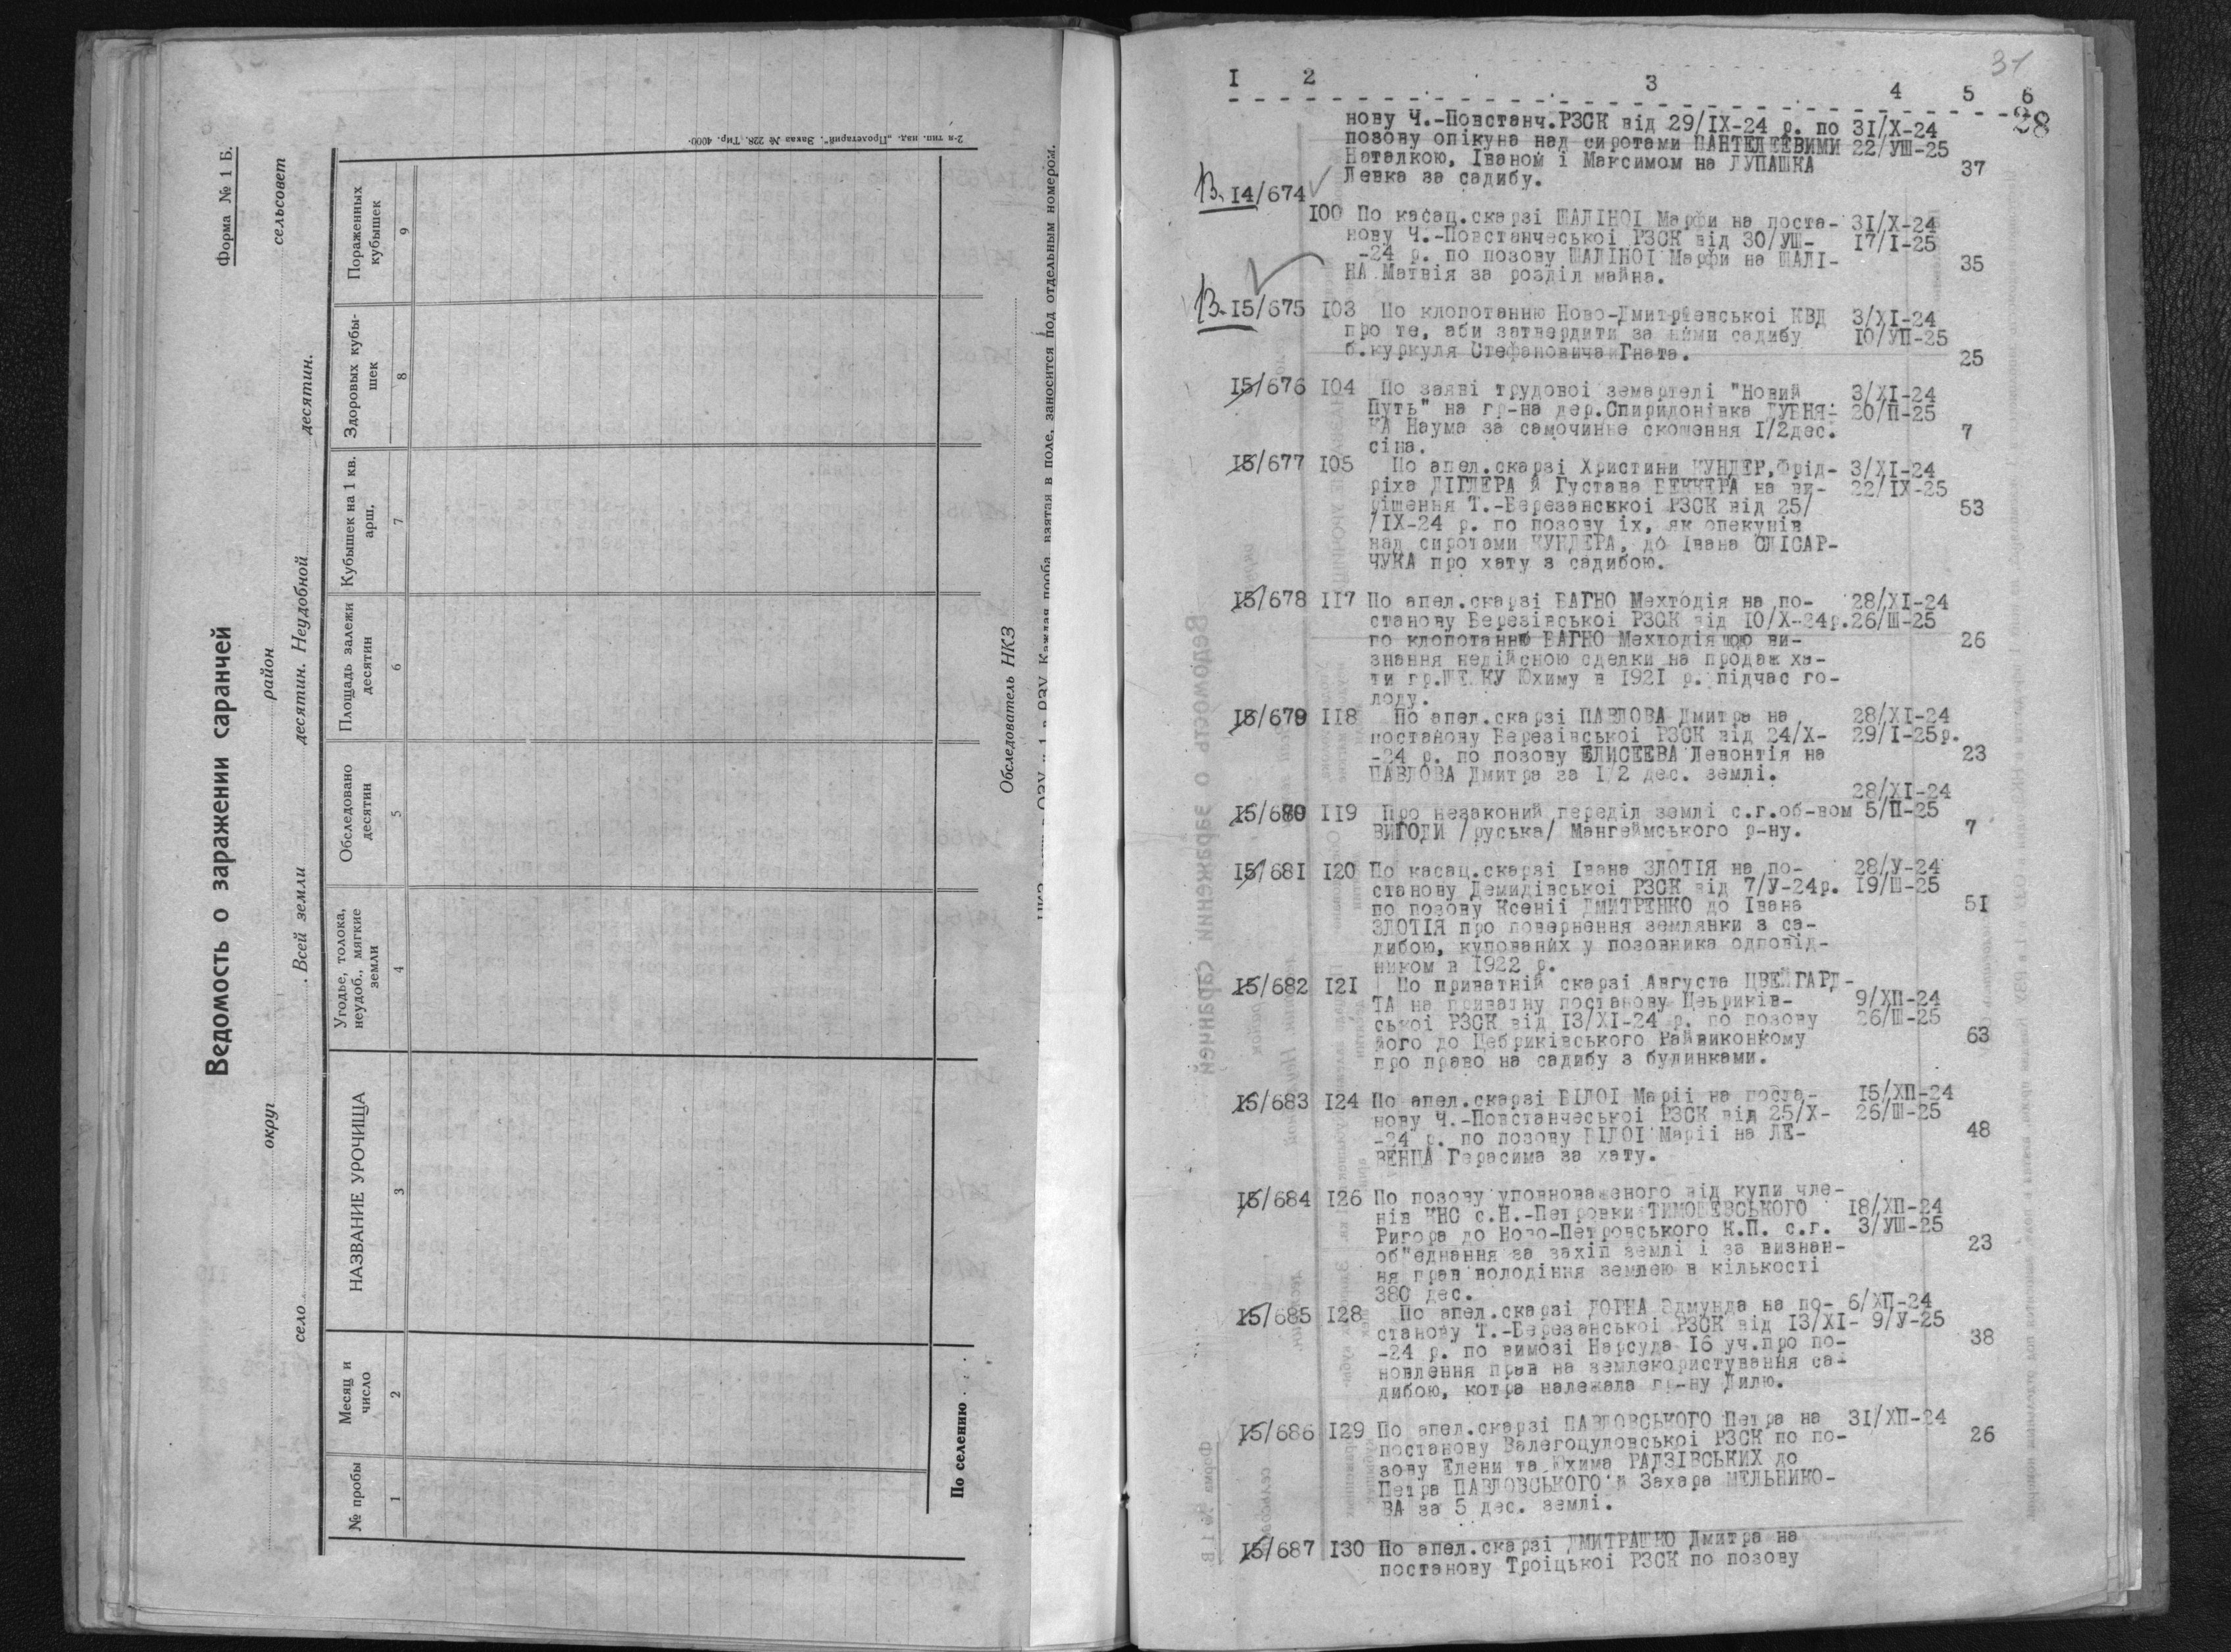 Форма № 1 Б.
Ведомость о заражении саранчей
округ район сельсовет
село Всей земли десятин. Неудобной десятин.
№ пробы
Месяц и число
НАЗВАНИЕ УРОЧИЩА
Угодье, толока, неудоб., мягкие земли
Обследовано десятин
Площадь залежи десятин
Кубышек на 1 кв. арш.
Здоровых кубышек
Пораженных кубышек
1 2 3 4 5 6 7 8 9
По селению
2-я тип. изд. „Пролетарий". Заказ № 228. Тир. 4000.
Обследователь НКЗ
Каждая проба, взятая в поле, заносится под отдельным номером.
31
I 2 3 4 5 6
28
нову Ч.-Повстанч.РЗСК від 29/IX-24 р. по 31/X-24
позову опікуна над сиротами ПАНТЕЛЕЕВИМИ 22/УШ-25
Наталкою, Іваном і Максимом на ЛУПАШКА 37
Левка за садибу.
В. I4/674
I00 По касац.скарзі ШАЛІНОІ Марфи на поста- 31/X-24
нову Ч.-Повстанчеськоі РЗСК від 30/УШ- I7/I-25
-24 р. по позову ШАЛІНОІ Марфи на ШАЛІ- 35
НА Матвія за розділ майна.
В. I5/675 I03 По клопотанню Ново-Дмитріевськоі КВД 3/XI-24
про те, аби затвердити за ними садибу I0/УП-25
б.куркуля Стефановича Гната. 25
I5/676 I04 По заяві трудовоіземартелі "Новий 3/XI-24
Путь" на гр-на дер.Спиридонівка ДУБНЯ- 20/П-25
КА Наума за самочинне скошення I/2дес. 7
сіна.
I5/677 I05 По апел.скарзі Христини КУНДЕР,Фрід- 3/XI-24
ріха ДІГЛЕРА й Густава БЕККЕРА на ви- 22/IX-25
рішення Т.-Березанськоі РЗСК від 25/ 53
/IX-24 р. по позову іх, як опекунів
над сиротами КУНДЕРА, до Івана СЛІСАР-
ЧУКА про хату з садибою.
I5/678 II7 По апел.скарзі ВАГНО Мехтодія на по- 28/XI-24
станову Березівськоі РЗСК від I0/X-24р. 26/Ш-25
по клопотанню ВАГНО Мехтодія щодо ви- 26
знання недійсною сделки на продаж ха-
ти гр. Юхиму в I92I р. підчас го-
лоду.
I5/679 II8 По апел.скарзі ПАВЛОВА Дмитра на 28/XI-24
постанову Березівськоі РЗСК від 24/X- 29/I-25р.
-24 р. по позову ЕЛИСЕЕВА Левонтія на 23
ПАВЛОВА Дмитра за I/2 дес. землі.
28/XI-24
I5/680 II9 Про незаконий переділ землі с.г.об-вом 5/П-25
ВИГОДИ /руська/ Мангеймського р-ну. 7
I5/68I I20 По касац.скарзі Івана ЗЛОТІЯ на по- 28/У-24
станову Демидівськоі РЗСК від 7/У-24р. I9/Ш-25
по позову Ксеніі ДМИТРЕНКО до Івана 5I
ЗЛОТІЯ про повернення землянки з са-
дибою, купованих у позовника одповід-
ником в I922 р.
I5/682 I2I По приватній скарзі Августа ЦВЕЙГАРД-
ТА на приватну постанову Цебриків- 9/ХП-24
ськоі РЗСК від I3/XI-24 р. по позову 26/Ш-25
його до Цебриківського Райвиконкому 63
про право на садибу з будинками.
I5/683 I24 По апел.скарзі БІЛОІ Маріі на поста- I5/ХП-24
нову Ч.-Повстанчеськоі РЗСК від 25/X- 26/Ш-25
-24 р. по позову БІЛОІ Маріі на ЛЕ- 48
ВЕНЦА Герасима за хату.
I5/684 I26 По позову уповноваженого від купи чле-
нів КНС с.Н.-Петровки ТИМОШЕВСЬКОГО I8/ХП-24
Ригора до Ново-Петровського К.П. с.г. 3/УШ-25
об"еднання за захіп землі і за визнан- 23
ня прав володіння землею в кількості
380 дес.
I5/685 I28 По апел.скарзі ДОРНА Эдмунда на по- 6/ХП-24
станову Т.-Березанськоі РЗСК від I3/XI- 9/У-25
-24 р. по вимозі Нарсуда I6 уч.про по- 38
новлення прав на землекористування са-
дибою, котра належала гр-ну Дилю.
I5/686 I29 По апел.скарзі ПАВЛОВСЬКОГО Петра на 3I/ХП-24
постанову Валегоцуловськоі РЗСК по по- 26
зову Елени та Юхима РАДЗІВСЬКИХ до
Петра ПАВЛОВСЬКОГО й Захара МЕЛЬНИКО-
ВА за 5 дес. землі.
I5/687 I30 По апел.скарзі ДМИТРАШКО Дмитра на
постанову Троіцькоі РЗСК по позову